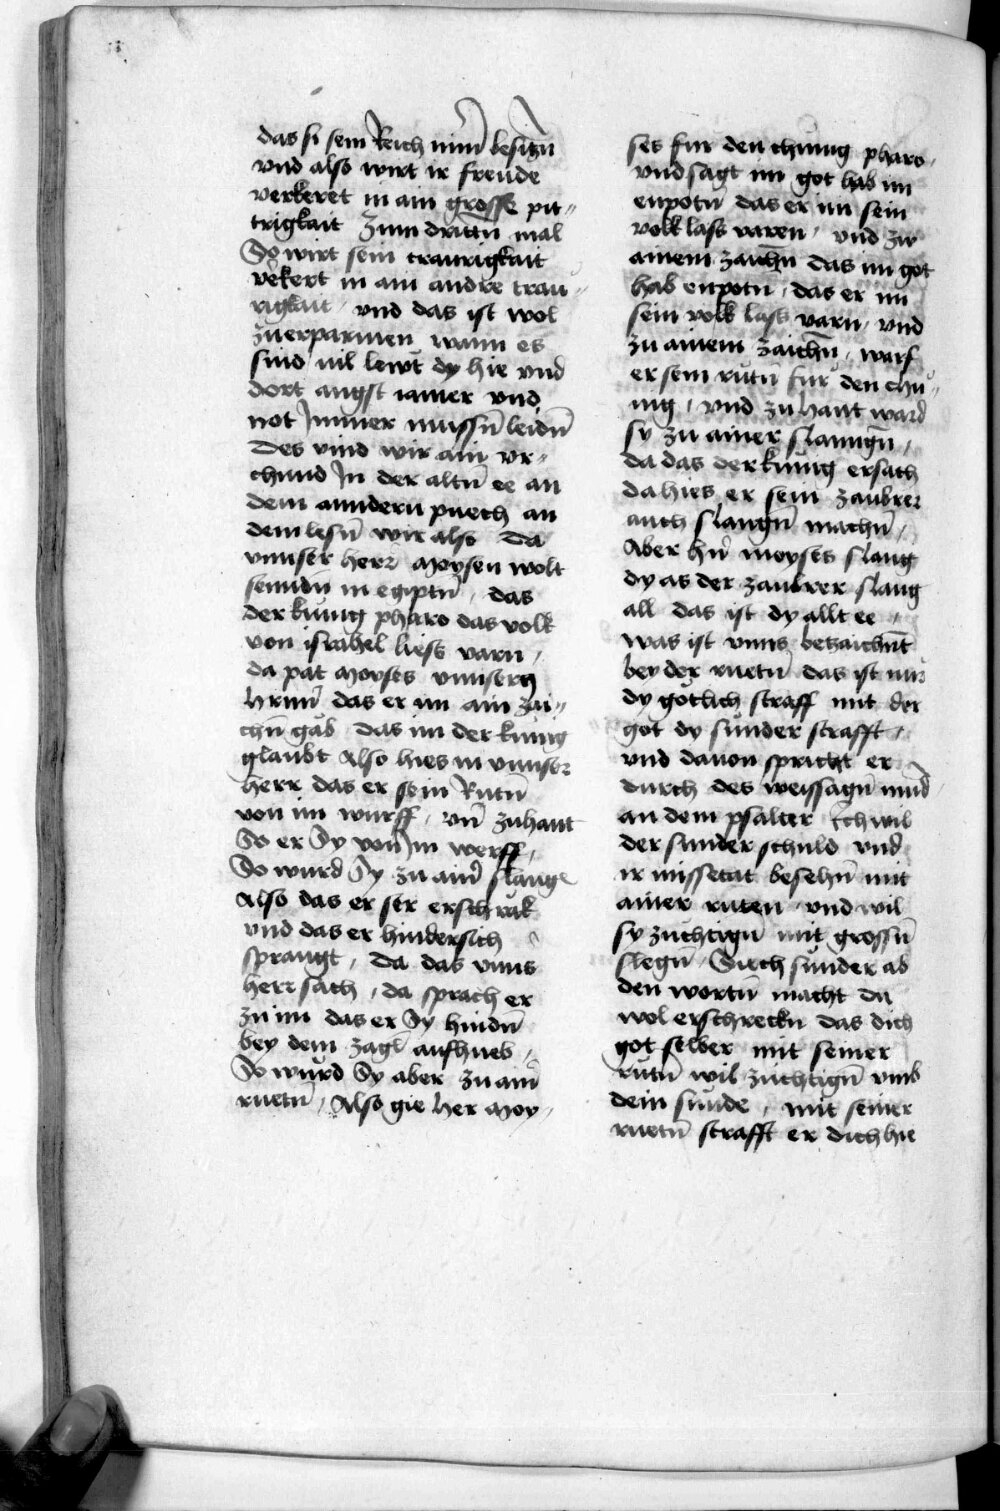 das si sein Reich nim̄ besiczn̄
vnd also wirt ir freude
verkeret in ain grosse pit„
trigkait Zum drittn̄ mal
So wirt sein traurigkait
v̄kert in ain andre trau„
rigkait · vnd das ist wol
zuerparmen wann es
sind vil lewt dy hie vnd
dort angst iamer vnd
not Immer mussn̄ leidn̄
Des vind wir ain vr„
chund In der altn̄ ee an
dem anndern puech an
dem lesn̄ wir also Da
vnnser herr Moysen wolt
senndn in egiptn̄ , das
der kunig pharo das volk
von israhel liess varn ,
da pat Moyses vnnsern
hern̄ das er im ain zai„
chn̄ gab das im der kunig
glaubt Also hies in vnnser
herr das er sein Rutn̄
von im wurff , vn̄ zuhant
So er Sy von Im werff ,
So wurd Sy zu ain̄ slange
Also das er ser erschrak
vnd das er hindersich
sprangt , Da das vnns
herr sach , da sprach er
zu im das er Sy hindn̄
bey dem zagl aufhueb ,
So wurd Sy aber zu ain̄
ruetn̄ , Also gie her Moy„
ses fur den chunig pharo ,
vnd sagt im got hab im
enpotn̄ das er im sein
volk lass varen , vnd zw
ainem zaichn̄ das im got
hab enpotn̄ , das er im
sein volk lass varn , vnd
zu ainem zaichn̄ , warf
er sein rutn̄ fur den chu„
nig , vnd zu hant ward
sy zu ainer slanngn̄ ,
da das der kunig ersach
da hies er sein zaubrer
auch slangn̄ machn̄ ,
Aber h'n̄ moyses slang
dy as der zaubrer slang
all das ist dy allt ee ,
was ist vnns bezaichn̄t
bey der ruetn̄ das ist nur
dy gotlich straff mit der
got dy sunder strafft ,
vnd dauon spricht er
durch des weissagn̄ mund ,
an dem psalter Ich wil
der sunder schuld vnd
ir missetat besehn̄ mit
ainer ruten vnd wil
sy zuchtign̄ mit grossn̄
slegn̄ , Siech sunder ab
den wortn̄ macht du
wol erschreckn das dich
got selber mit seiner
rutn̄ wil zuchtign̄ vmb
dein sunde , mit seiner
ruetn̄ strafft er dich hie